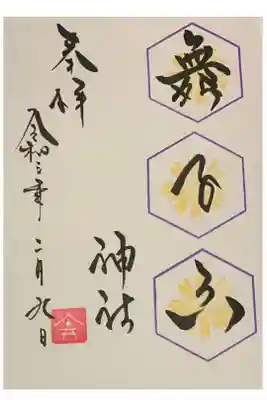 舞子六
神社
奉拝
令和三年 二月九日